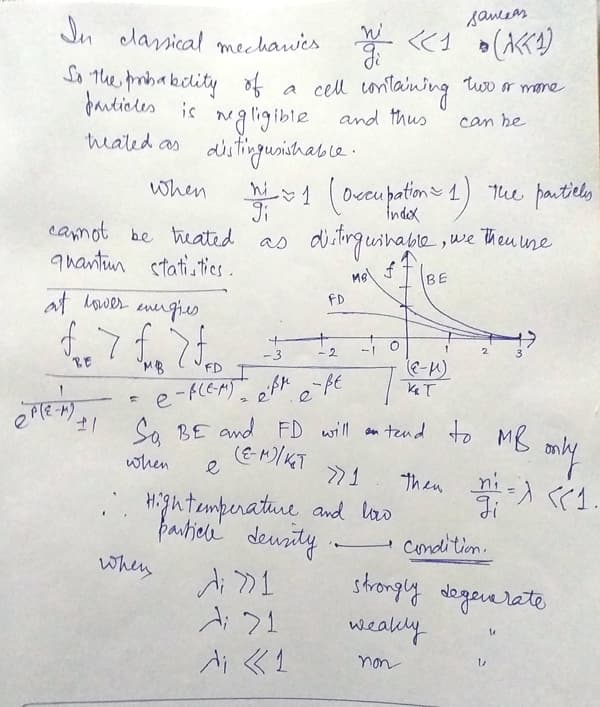 In classical mechanics ni/gi << 1 (λ<<1)
So the probability of a cell containing two or more
particles is negligible and thus can be
treated as distingusishable.
when ni/gi ≈ 1 (Occupation Index ≈ 1) The particles
cannot be treated as distinguishable, we then use
quantum statistics.
at lower energies
f_BE > f_MB > f_FD
MB f BE
FD
-3 -2 -1 0 1 2 3
(ε-μ)/K_BT
1/(e^β(ε-μ) ±1) = e^-β(ε-μ) = e^βμ . e^-βε
So, BE and FD will tend to MB only
when e^(ε-μ)/K_BT >> 1. Then ni/gi = λ << 1.
∴ High temperature and low
particle density. → condition.
when
λi >> 1 strongly degenerate
λi > 1 weakly "
λi << 1 non "